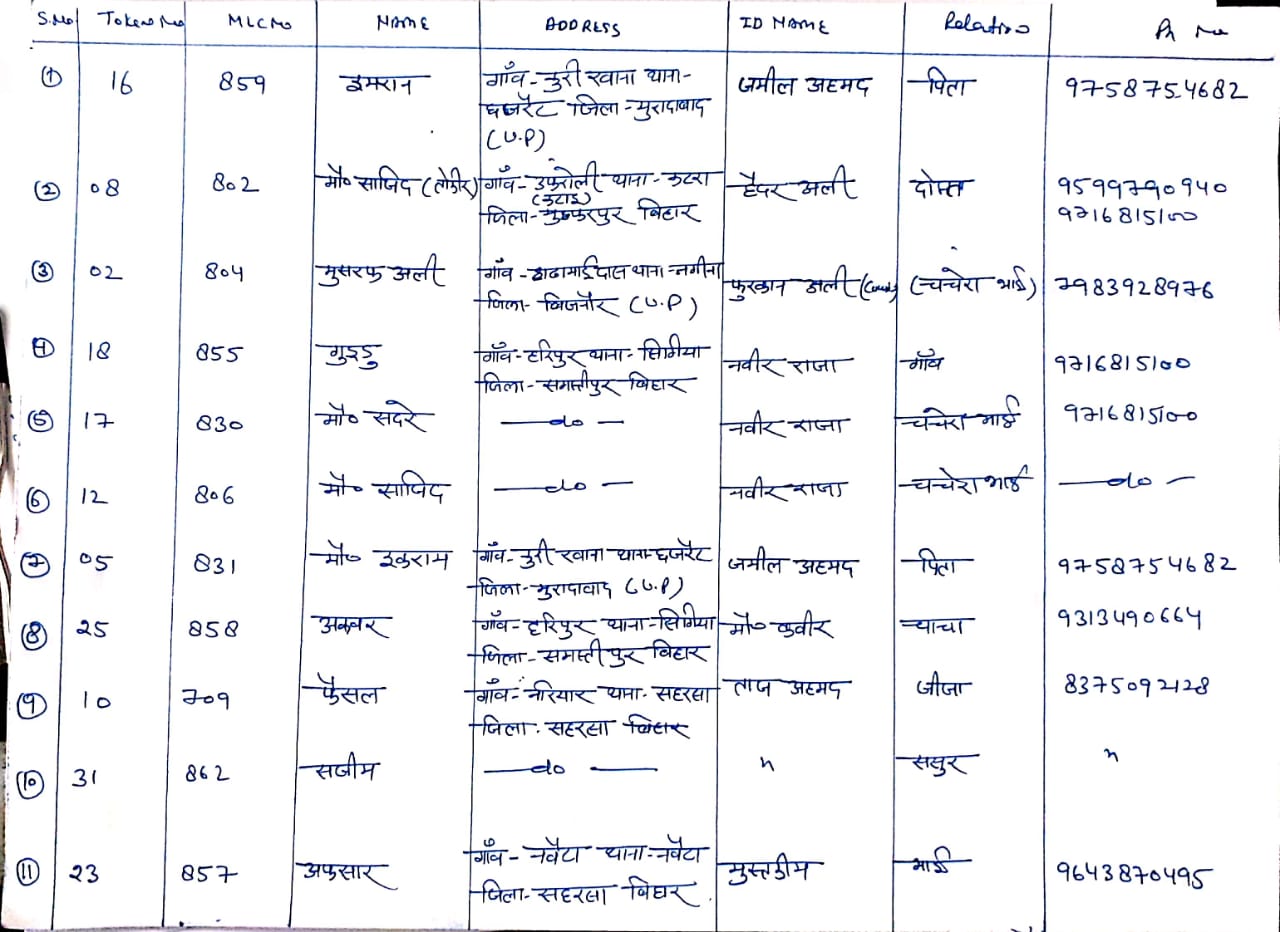 S.No Token No MLC No NAME ADDRESS ID NAME Relation Ph No
(1) 16 859 इमरान गाँव-नुरी खाना थाना- जमील अहमद पिता 9758754682
छजरैट जिला-मुरादाबाद
(U.P)
(2) 08 802 मौ० साजिद (तोहीर) गाँव- थाना-कटरा हैदर अली दोस्त 9599790940
जिला- बिहार 9716815100
(3) 02 804 मुसरफ अली गाँव- थाना-नगीना फुरकान अली (चचेरा भाई) 7983928976
जिला-बिजनौर (U.P)
(4) 18 855 गुड्डु गाँव-हरिपुर थाना-सिंगिया नवीर राजा गाँव 9716815100
जिला-समस्तीपुर बिहार
(5) 17 830 मौ० सदरे —do— नवीर राजा चचेरा भाई 9716815100
(6) 12 806 मौ० साजिद —do— नवीर राजा चचेरा भाई —do—
(7) 05 831 मौ० इकराम गाँव-नुरी खाना थाना-छजरैट जमील अहमद पिता 9758754682
जिला-मुरादाबाद (U.P)
(8) 25 858 अकबर गाँव-हरिपुर थाना-सिंगिया मौ० कवीर चाचा 9313490664
जिला-समस्तीपुर बिहार
(9) 10 709 फैसल गाँव-नरियार थाना-सहरसा ताज अहमद जीजा 8375092128
जिला-सहरसा बिहार
(10) 31 862 सजीम —do— " ससुर "
(11) 23 857 अफसार गाँव-नवैटा थाना-नवैटा मुस्तकीम भाई 9643870495
जिला-सहरसा बिहार